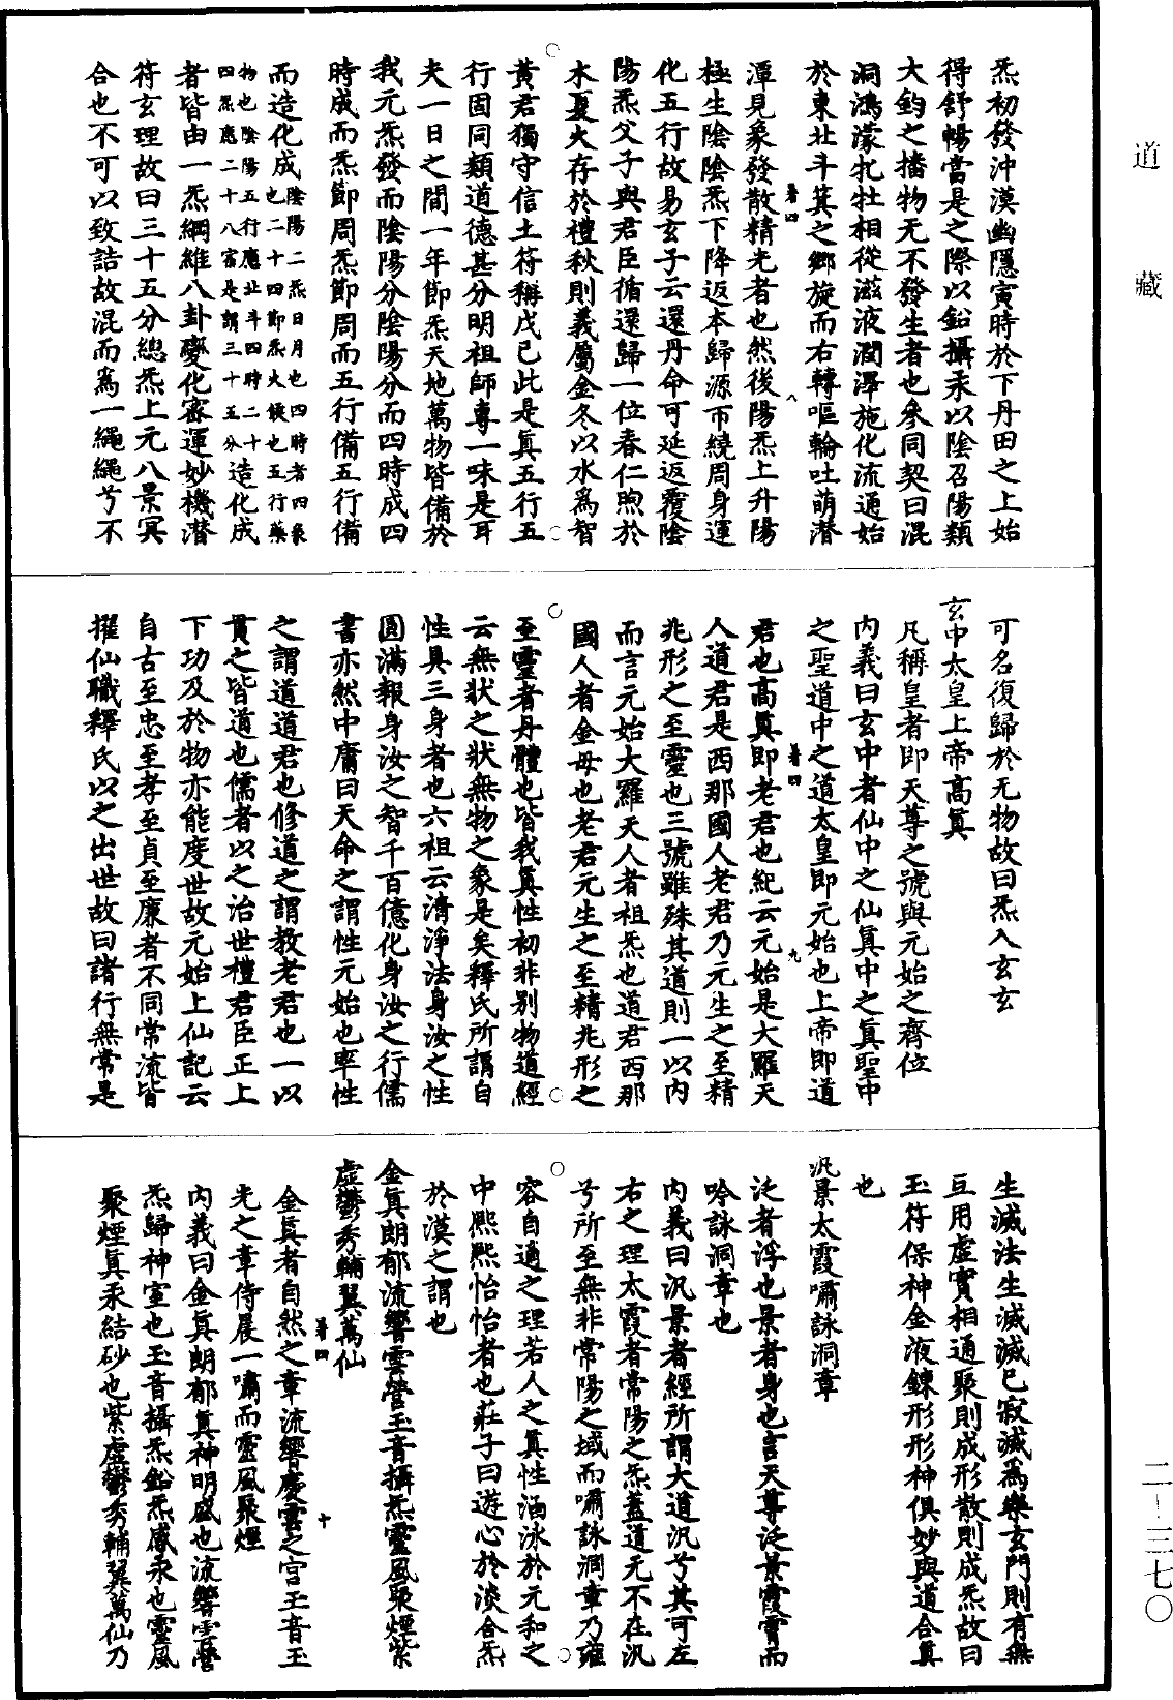 道藏
炁初發沖漠幽隱寅時於下丹田之上始
得舒暢當是之際以鉛攝汞以陰召陽類
大鈞之播物无不發生者也參同契曰混
洞鴻濛牝牡相從滋液潤澤施化流通始
於東北斗箕之鄉旋而右轉嘔輪吐萌潛
潭見象發散精光者也然後陽炁上升陽
極生陰陰炁下降返本歸源帀繞周身運
化五行故易玄子云還丹命可延返覆陰
陽炁父子與君臣循還歸一位春仁煦於
木夏火存於禮秋則義屬金冬以水爲智
黃君獨守信土符稱戊己此是真五行五
行固同類道德甚分明祖師專一味是耳
夫一日之間一年節炁天地萬物皆備於
我元炁發而陰陽分陰陽分而四時成四
時成而炁節周炁節周而五行備五行備
而造化成陰陽二炁日月也四時者四象也二十四節炁火候也五行藥物也陰陽五行應北斗四時二十四炁應二十八宿是謂三十五分造化成
者皆由一炁綱維八卦變化密運妙機潛
符玄理故曰三十五分總炁上元八景冥
合也不可以致詰故混而爲一繩繩兮不
可名復歸於无物故曰炁入玄玄
玄中太皇上帝高真
凡稱皇者即天尊之號與元始之齊位
內義曰玄中者仙中之仙真中之真聖中
之聖道中之道太皇即元始也上帝即道
君也高真即老君也紀云元始是大羅天
人道君是西那國人老君乃元生之至精
兆形之至靈也三號雖殊其道則一以內
而言元始大羅天人者祖炁也道君西那
國人者金母也老君元生之至精兆形之
至靈者丹體也皆我真性初非别物道經
云無狀之狀無物之象是矣釋氏所謂自
性具三身者也六祖云清淨法身汝之性
圓滿報身汝之智千百億化身汝之行儒
書亦然中庸曰天命之謂性元始也率性
之謂道道君也修道之謂教老君也一以
貫之皆道也儒者以之治世禮君臣正上
下功及於物亦能度世故元始上仙記云
自古至忠至孝至貞至廉者不同常流皆
擢仙職釋氏以之出世故曰諸行無常是
生滅法生滅滅已寂滅爲樂玄門則有無
互用虛實相通聚則成形散則成炁故曰
玉符保神金液鍊形形神俱妙與道合真
也
汎景太霞嘯詠洞章
泛者浮也景者身也言天尊泛景霞霄而
吟詠洞章也
內義曰汎景者經所謂大道汎兮其可左
右之理太霞者常陽之炁蓋道无不在汎
兮所至無非常陽之域而嘯詠洞章乃雍
容自適之理若人之真性涵泳於元和之
中熙熙怡怡者也莊子曰遊心於淡合炁
於漠之謂也
金真朗郁流響雲營玉音攝炁靈風聚煙紫
虛鬱秀輔翼萬仙
金真者自然之章流響慶雲之宮玉音玉
光之章侍晨一嘯而靈風聚煙
內義曰金真朗郁真神明盛也流響雲營
炁歸神室也玉音攝炁鉛炁感汞也靈風
聚煙真汞結砂也紫虛鬱秀輔翼萬仙乃
二-三七〇